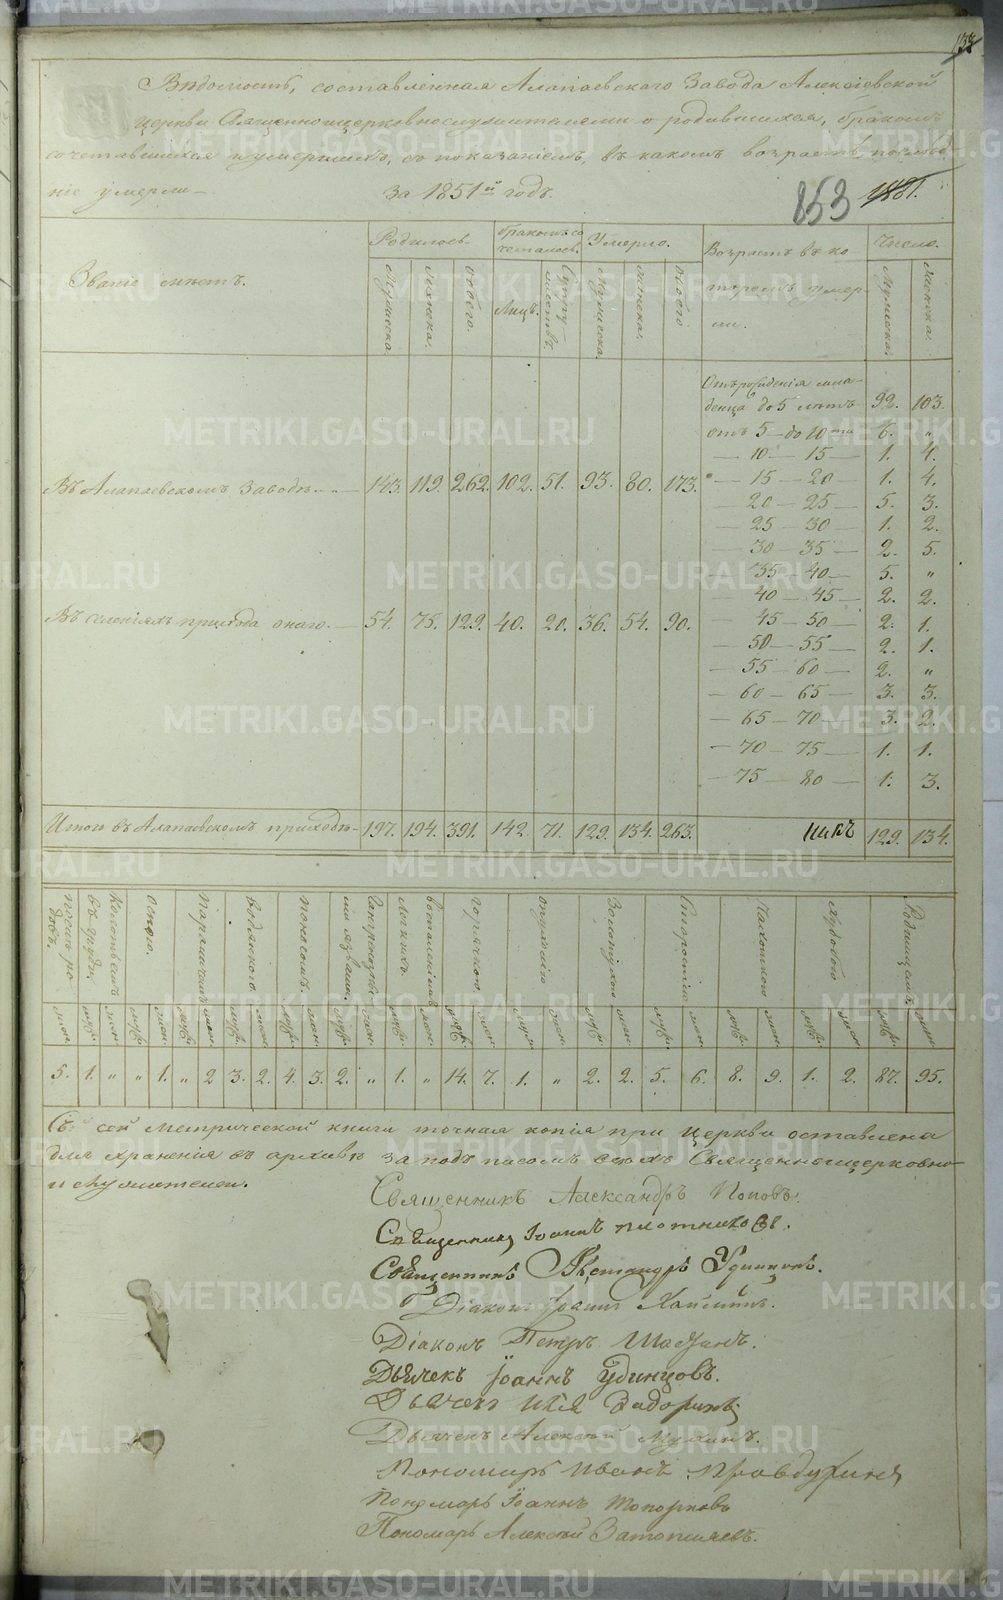 133
Вѣдомость, составленная Алапаевскаго Завода Алексіевской
церкви Священноцерковнослужителями о родившихся, бракомъ
сочетавшихся и умершихъ, со показаніемъ, въ какомъ возрастѣ послѣд-
ніе умерли —
за 1851й годъ.
853
Званіе мѣстъ.
Родилось.
Бракомъ сочеталось.
Умерло.
Возрастъ въ ко-
торомъ умер-
ли.
Число.
Мужеска. Женска. Обоего. Лицъ. Супружествъ. Мужеска. Женска. Обоего. Мужеска. Женска.
Отъ рожденія мла-
денца до 5 лѣтъ 92. 103.
отъ 5 — до 10ти 6. „
— 10 — 15 — 1. 4.
Въ Алапаевскомъ Заводѣ — 143. 119. 262. 102. 51. 93. 80. 173.
— 15 — 20 — 1. 4.
— 20 — 25 — 5. 3.
— 25 — 30 — 1. 2.
— 30 — 35 — 2. 5.
— 35 — 40 — 5. „
— 40 — 45 — 2. 2.
Въ селеніяхъ прихода онаго. — 54. 75. 129. 40. 20. 36. 54. 90.
— 45 — 50 — 2. 1.
— 50 — 55 — 2. 1.
— 55 — 60 — 2. „
— 60 — 65 — 3. 3.
— 65 — 70 — 3. 2.
— 70 — 75 — 1. 1.
— 75 — 80 — 1. 3.
Итого въ Алапаевскомъ приходѣ — 197. 194. 391. 142. 71. 129. 134. 263. 129. 134.
Послѣ родовъ. Въ груди. Колотьемъ Оспою. Параличемъ Водяною Поносомъ. Горячкою Золотухою Старостію Чахоткою Родимцемъ
5. 1. „ „ 1. „ 2 3. 2. 4. 3. 2. „ 1. „ 14. 7. 1. „ 2. 2. 5. 6. 8. 9. 1. 2. 87. 95.
Съ сей метрической книги точная копія при церкви оставлена
для храненія въ архивѣ за подписомъ всѣхъ Священноцерковно-
служителей.
Священникъ Александръ Поповъ.
Священникъ Іоаннъ Плотниковъ.
Священникъ Александръ Удинцовъ.
Діаконъ Іоаннъ
Діаконъ Петръ
Дьячекъ Іоаннъ Удинцовъ.
Дьячекъ Илія Задоринъ
Дьячекъ Алексѣй Мухинъ.
Пономарь Иванъ Правдухинъ
Пономарь Іоаннъ Топорковъ
Пономарь Алексѣй Затопляевъ.
METRIKI.GASO-URAL.RU